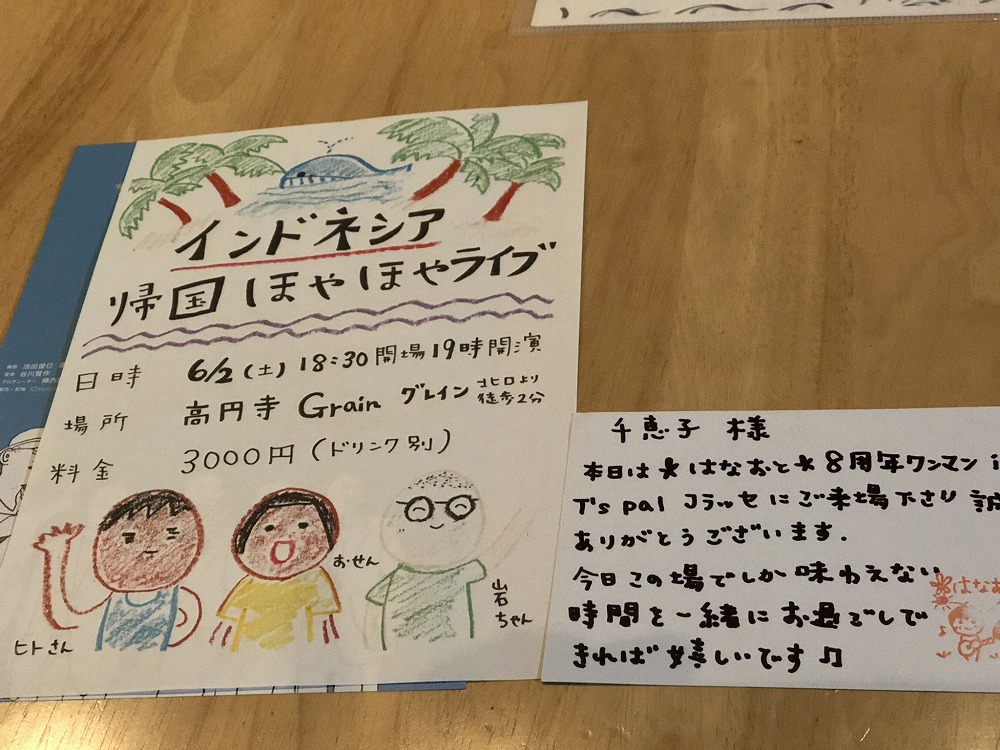 インドネシア
帰国ほやほやライブ
日時 6/2(土) 18:30開場19時開演
場所 高円寺 Grain グレイン 北口より徒歩2分
料金 3000円(ドリンク別)
おせん
ヒトさん
岩石ちゃん
千恵子 様
本日は*はなおと*8周年ワンマン i
T's pal コラッセにご来場下さり 誠
ありがとうございます.
今日この場でしか味わえない
時間を一緒にお過ごしで
きれば嬉しいです♫
はなお